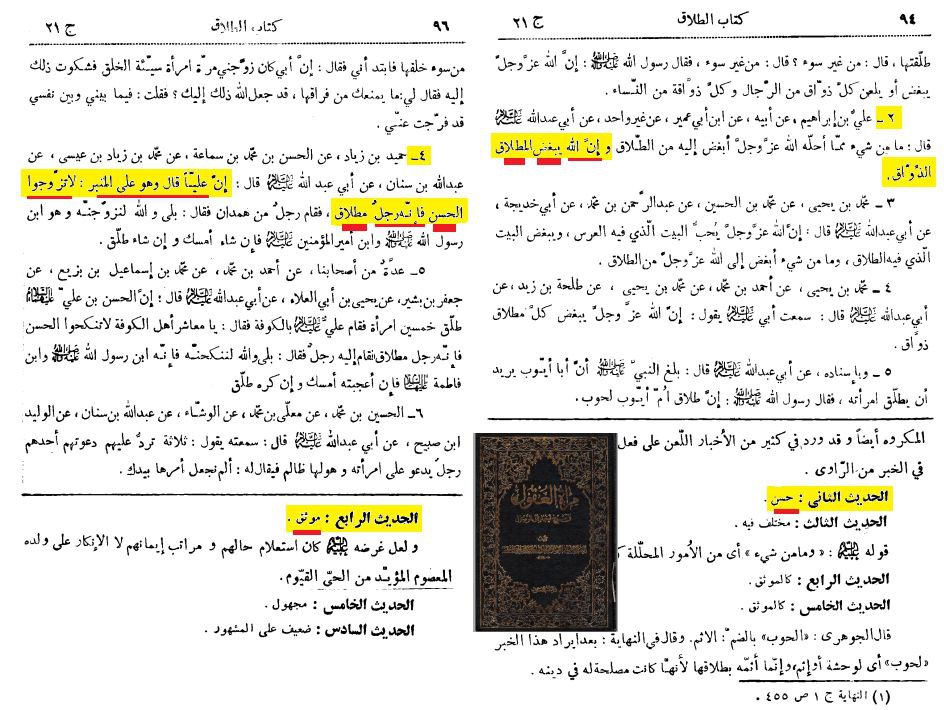 ج ٢١
كتاب الطلاق
٩٤
طلّقتها ، قال : من غير سوء ؟ قال : من غير سوء ، فقال رسول الله ﷺ : إنَّ الله عزَّ وجلَّ
يبغض أو يلعن كلَّ ذوّاق من الرِّجال وكلَّ ذوّاقة من النّساء .
٢ ـ عليُّ بن إبراهيم ، عن أبيه ، عن ابن أبي عمير ، عن غير واحد ، عن أبي عبدالله عليه السلام
قال : ما من شيء ممّا أحلّه الله عزَّ وجلَّ أبغض إليه من الطلاق و إنَّ الله يبغض المطلاق
الذوَّاق .
٣ ـ محمّد بن يحيى ، عن محمّد بن الحسين ، عن عبدالرَّحمن بن محمّد ، عن أبي خديجة ،
عن أبي عبدالله عليه السلام قال : إنَّ الله عزَّ وجلَّ يُحبُّ البيت الّذي فيه العرس ، ويبغض البيت
الّذي فيه الطلاق ، وما من شيء أبغض إلى الله عزَّ وجلَّ من الطلاق .
٤ ـ محمّد بن يحيى ، عن أحمد بن محمّد ، عن محمّد بن يحيى ، عن طلحة بن زيد ، عن
أبي عبدالله عليه السلام قال : سمعت أبي عليه السلام يقول : إنَّ الله عزَّ وجلَّ يبغض كلَّ مطلاق
ذوّاق .
٥ ـ وبإسناده ، عن أبي عبدالله عليه السلام قال : بلغ النبيَّ ﷺ أنَّ أبا أيّوب يريد
أن يطلّق امرأته ، فقال رسول الله ﷺ : إنَّ طلاق اُمّ أيّوب لحوب .
المكروه أيضاً و قد ورد في كثير من الأخبار اللّعن على فعل
في الخبر من الرّاوى .
الحديث الثانى : حسن .
الحديث الثالث : مختلف فيه .
قوله عليه السلام : « ومامن شيء » أى من الأمور المحلّلة
الحديث الرابع : كالموثق .
الحديث الخامس : كالموثق .
قال الجوهرى : «الحوب» بالضمّ : الاثم . وقال في النهاية : بعد ايراد هذا الخبر
«لحوب» أى لوحشة أو إثم، وإنّما أثّمه بطلاقها لأنّها كانت مصلحة له في دينه .
(١) النهاية ج ١ ص ٤٥٥ .
مرآة العقول
ج ٢١
كتاب الطلاق
٩٦
من سوء خلقها فابتد أني فقال : إنَّ أبي كان زوَّجني مرَّة امرأة سيّئة الخلق فشكوت ذلك
إليه فقال لي : ما يمنعك من فراقها ، قد جعل الله ذلك إليك ؟ فقلت : فيما بيني وبين نفسي
قد فرَّجت عنّي .
٤ ـ حميد بن زياد ، عن الحسن بن محمّد بن سماعة ، عن محمّد بن زياد بن عيسى ، عن
عبدالله بن سنان ، عن أبي عبد الله عليه السلام قال : إنَّ عليّاً قال وهو على المنبر : لاتزوّجوا
الحسن فإنّه رجلٌ مطلاق ، فقام رجل من همدان فقال : بلى و الله لنزوّجنّه و هو ابن
رسول الله ﷺ وابن أمير المؤمنين عليه السلام فإن شاء أمسك و إن شاء طلّق .
٥ ـ عدَّةٌ من أصحابنا ، عن أحمد بن محمّد ، عن محمّد بن إسماعيل بن بزيع ، عن
جعفر بن بشير ، عن يحيى بن أبي العلاء ، عن أبي عبدالله عليه السلام قال : إنَّ الحسن بن عليّ عليهما السلام
طلّق خمسين امرأة فقام عليٌّ عليه السلام بالكوفة فقال : يا معاشر أهل الكوفة لاتنكحوا الحسن
فإنّه رجل مطلاق فقام إليه رجلٌ فقال : بلى والله لننكحنّه فإنّه ابن رسول الله ﷺ وابن
فاطمة عليها السلام فإن أعجبته أمسك و إن كره طلّق
٦ ـ الحسين بن محمّد ، عن معلّى بن محمّد ، عن الوشّاء ، عن عبدالله بن سنان ، عن الوليد
ابن صبيح ، عن أبي عبدالله عليه السلام قال : سمعته يقول : ثلاثة تردُّ عليهم دعوتهم أحدهم
رجلٌ يدعو على امرأته و هولها ظالم فيقال له : ألم نجعل أمرها بيدك .
الحديث الرابع : موثق .
و لعل غرضه عليه السلام كان استعلام حالهم و مراتب إيمانهم لا الإنكار على ولده
المعصوم المؤيّد من الحيّ القيّوم .
الحديث الخامس : مجهول .
الحديث السادس : ضعيف على المشهور .